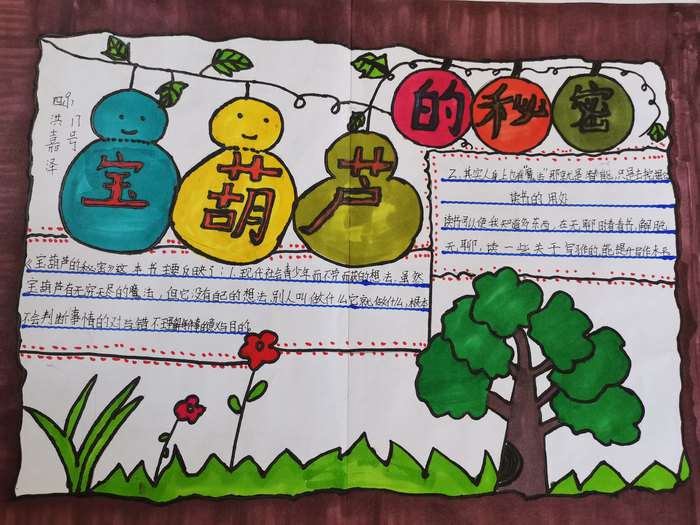 宝葫芦的秘密
四东
洪17号
嘉
泽
《宝葫芦的秘密》这本书主要反映了:1.现代社会青少年而不劳而获的想法,虽然
宝葫芦有无穷无尽的魔法,但它没有自己的想法,别人叫做什么它就做什么,根本
不会判断事情的对与错不理解做事的意义与目的。
2.其实人身上也有"魔法"那就是智能,只是去挖掘
读书的用处
读书可以使我知道多东西,在无聊时看看书,解脱
无聊,读一些关于写作的,能提升写作水平